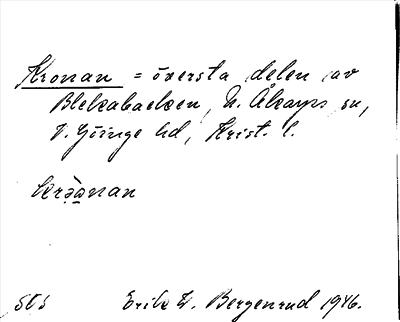 Kronan = översta delen av
Blekabacken, N. Åkarps sn,
V. Göinge hd, Krist. l.
krò̤a̤nan
Erik W. Bergenrud 1946.